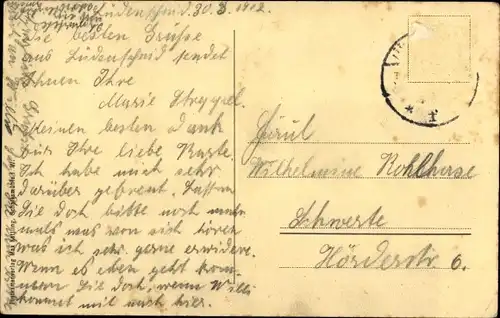 Lüdenscheid 30.8.1912.
Die besten Grüße
aus Lüdenscheid sendet
Ihnen Ihre
Marie Streppel.
Meinen besten Dank
für Ihre liebe Karte.
Ich habe mich sehr
darüber gefreut. Lassen
Sie doch bitte noch mehr-
mals was von sich hören
was ich sehr gerne erwidere.
Wenn es eben geht kom-
men Sie doch, wenn Willi
kommt mit nach hier.
Fräul
Wilhelmine Kohlhase
Schwerte
Hörderstr 6.